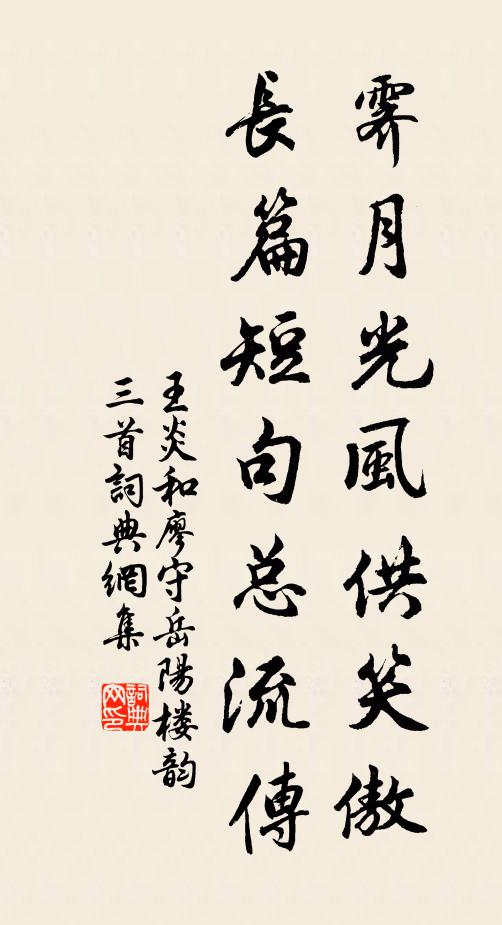 霽月光風供笑傲
長篇短句总流傳
王炎和廖守岳陽楼韵
三首詞典網集
詞典网印